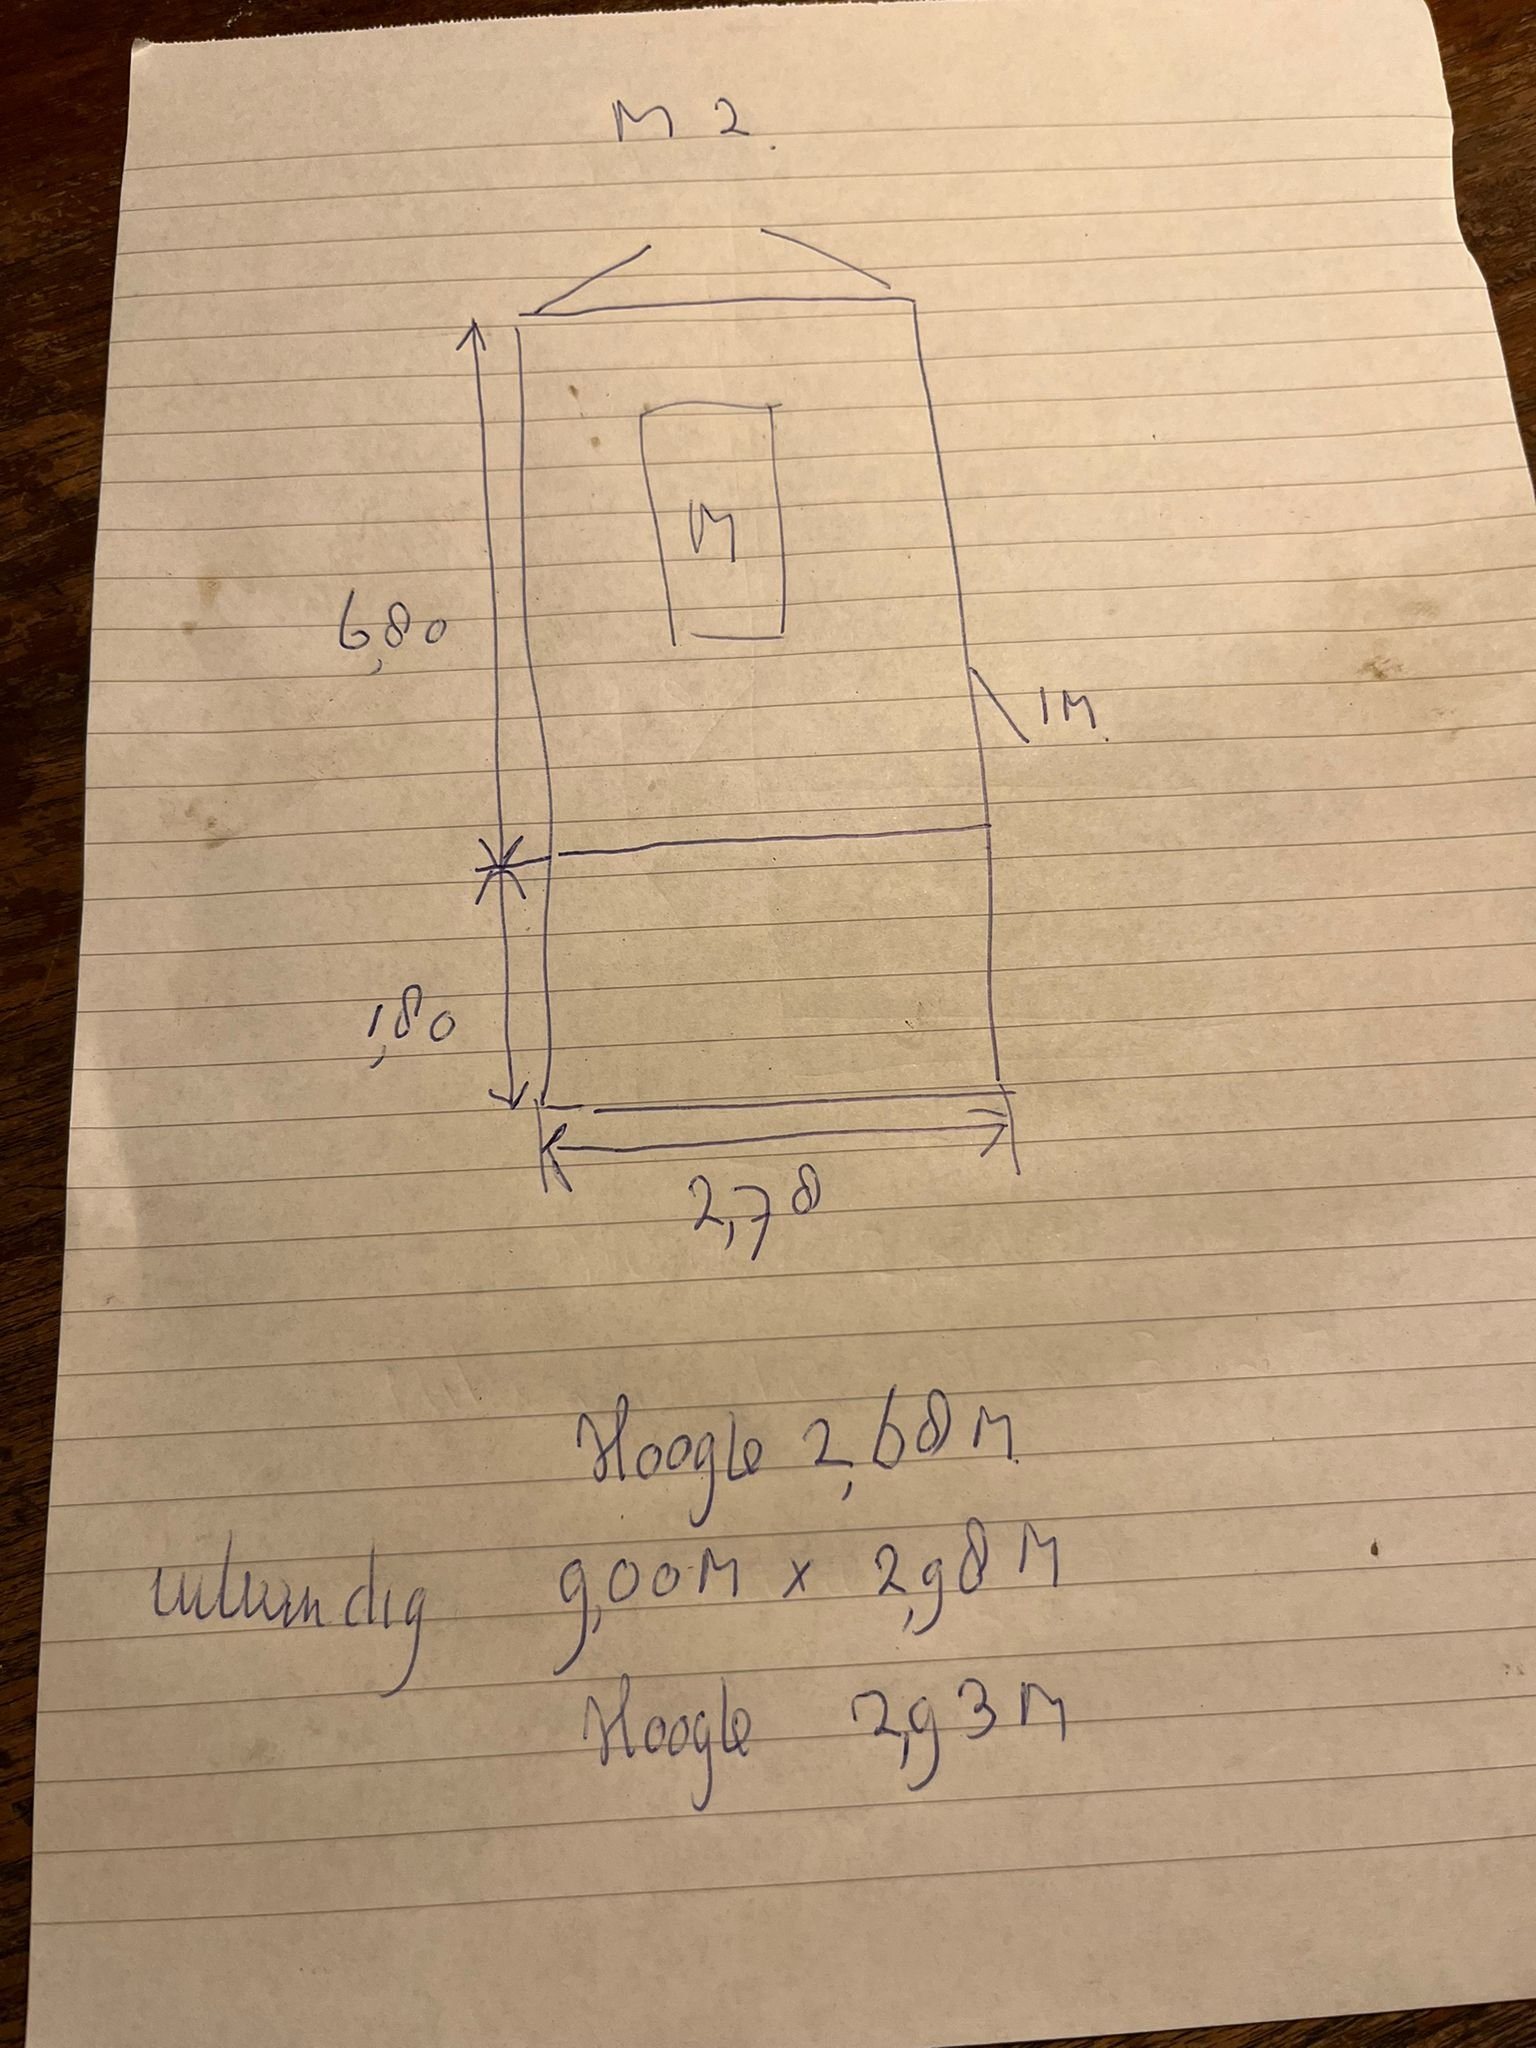 M 2.
M
6,80
1M.
1,80
2,78
Hoogte 2,68 M
uitwendig 9,00 M x 2,98 M
Hoogte 2,93 M